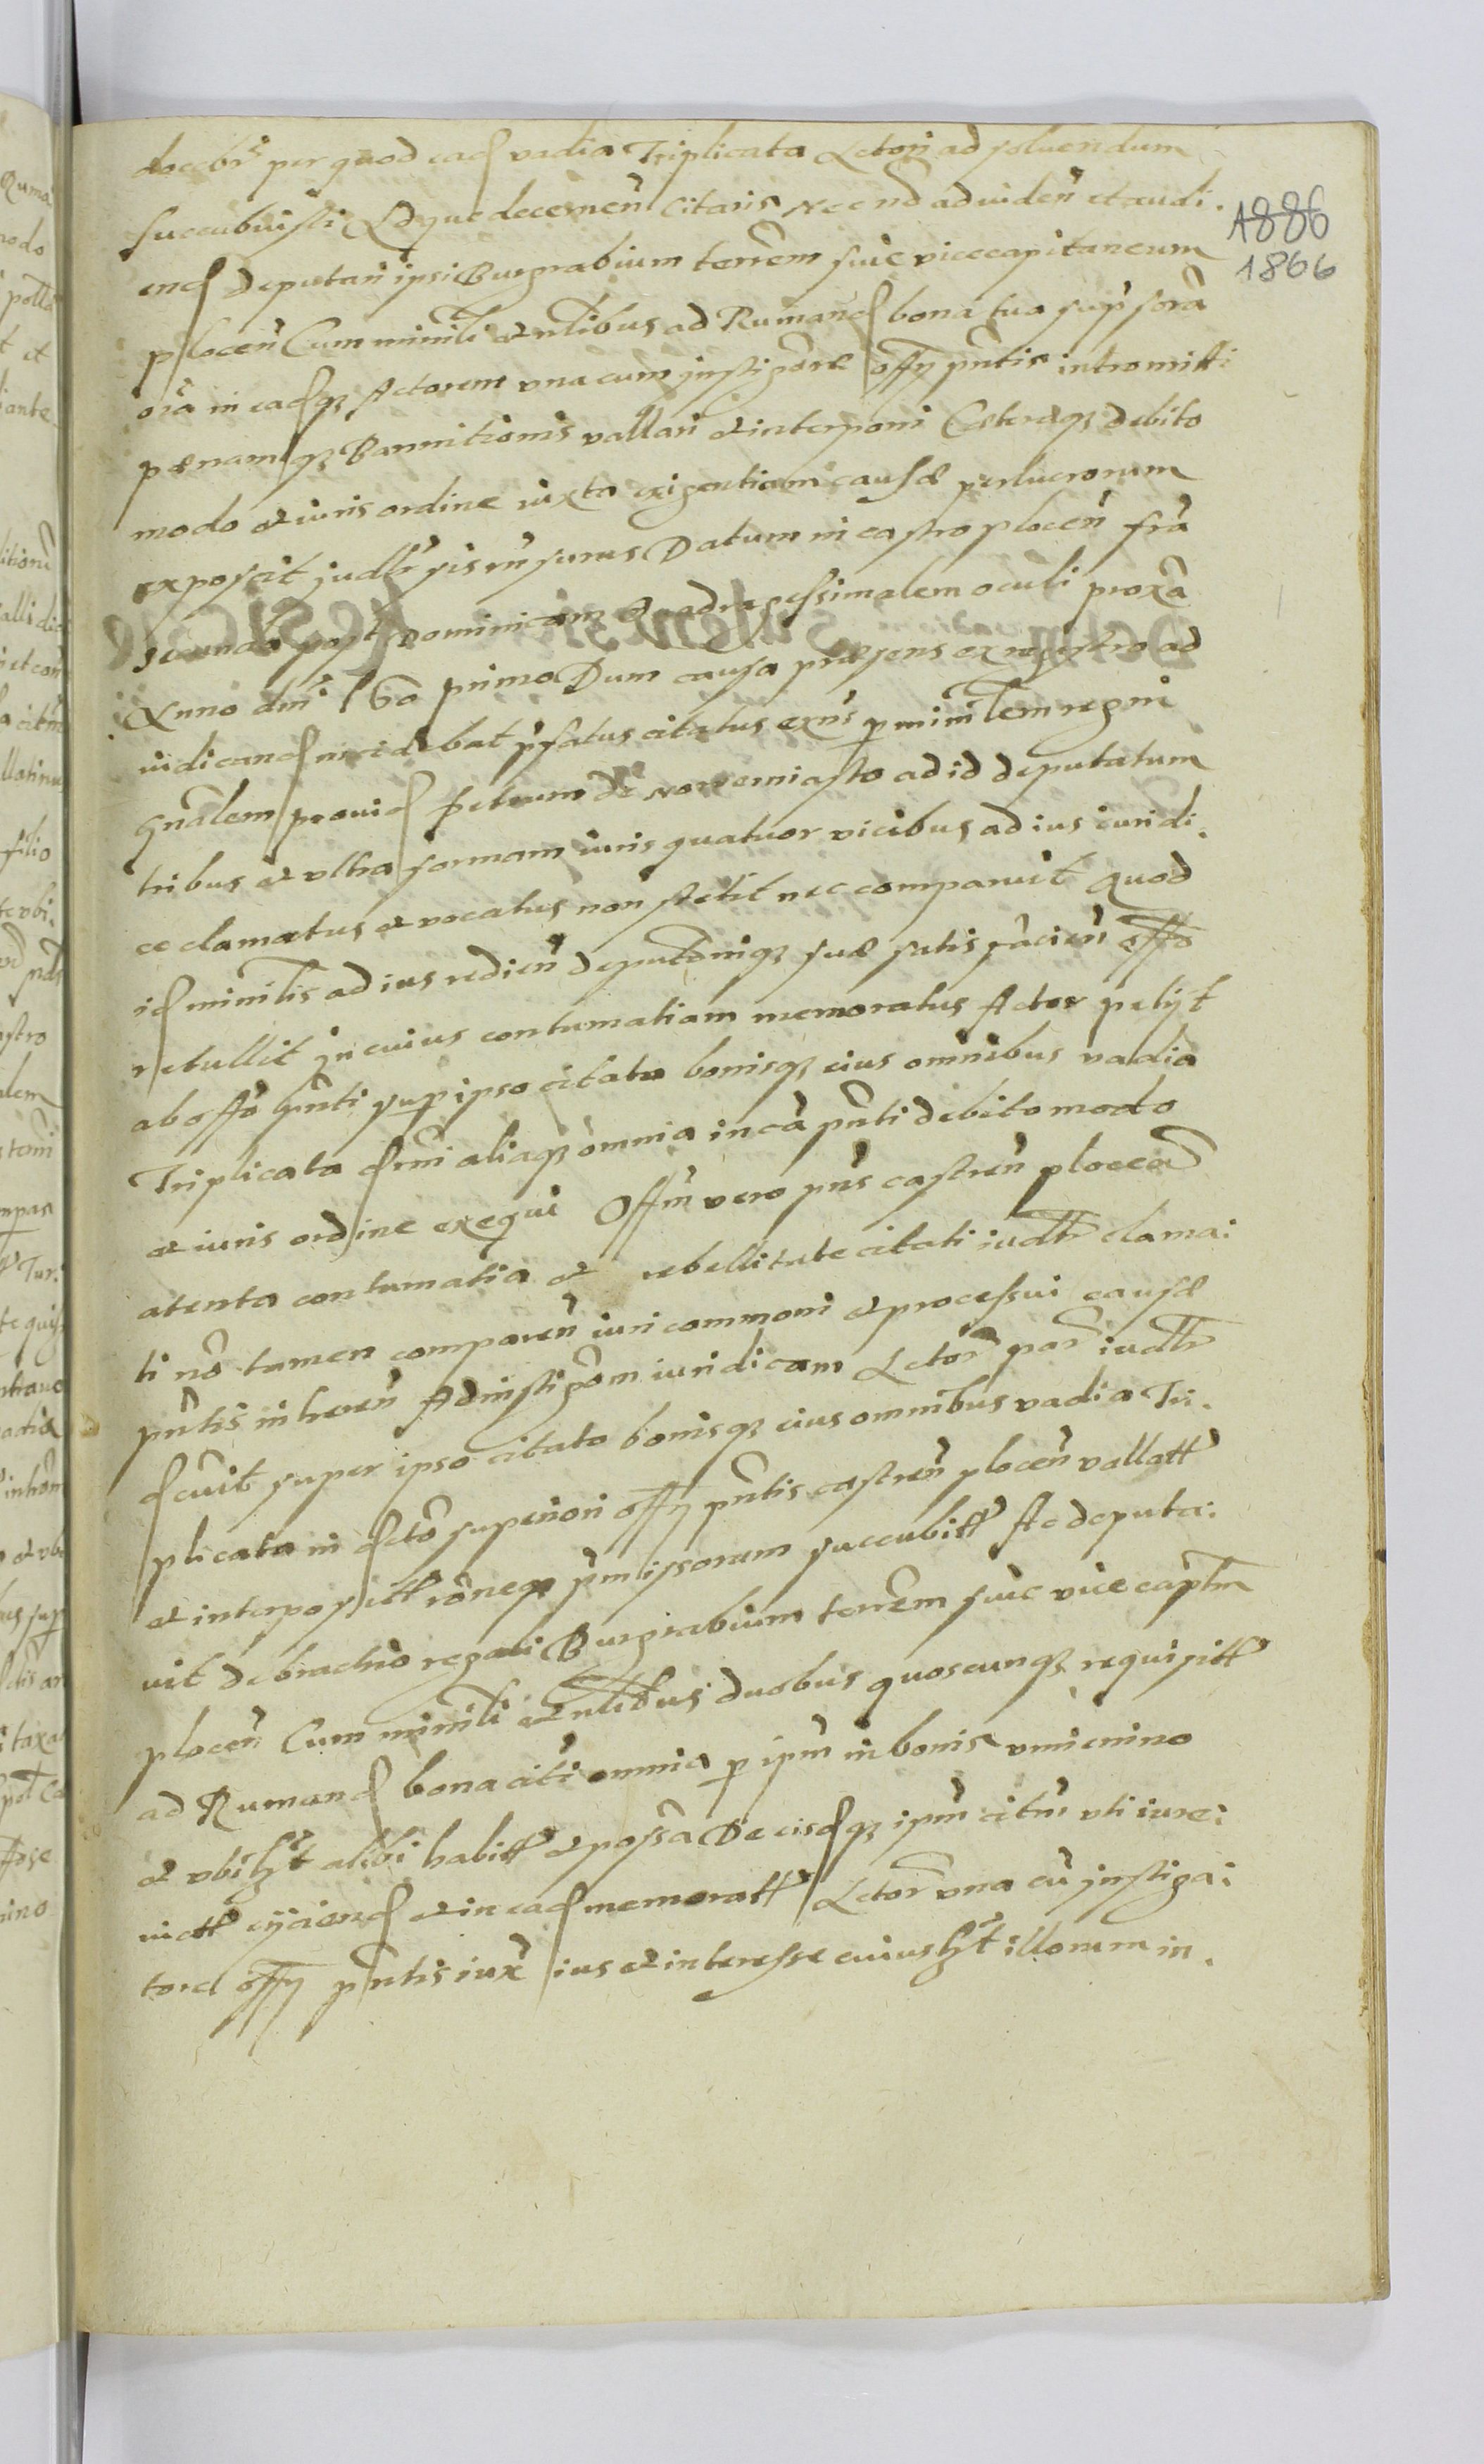 docebit per quod ead vadia Triplicata Actori ad soluendum
succubuisti Adque decernen Citaris Necnō ad viden et audi.
1886
1866
end deputari ipsi Burgrabium terrēm siue vicecapitaneum
plocen Cum minrli et nlibus ad Rumand bona tua sup forā
oīa in eadqz Actorem vna cum instigōre offy pntis intromitti
pænamqz Bannitionis vallari et interponi Cæteraqz debito
modo et iuris ordine iuxta exigentiam causæ perlucrorum
exposcit judlr sis rīnsurus Datum in castro plocen fria
secunda post Dominicam Quadragessimalem oculi proxa
Anno dni 160 primo Dum causa præsens ex registro ad
iudicand incidebat pfatus citatus exns p minrlem regni
gnalem prouid Petrum de Nowemiasto ad id deputatum
tribus et vltra formam iuris quatuor vicibus ad ius iuridi.
ce clamatus et vocatus non stetit nec comparuit quod
id minrlis ad ius redien deputōniqz suæ satis facien offo
retullit In cuius contumatiam memoratus Actor petyt
ab offō pnti sup ipso citato bonisqz eius omnibus vadia
Triplicata dcrni aliaqz omnia in cā pnti debito modo
et iuris ordine exequi Offm vero pns castren plocen
atenta contumatia et rebellitate citati iudlr clama:
ti nō tamen comparen iuri commoni et processui causæ
pntis inheren Ad instigōm iuridicam Actoris par iudlr
dcrnit super ipso citato bonisqz eius omnibus vadia Tri.
plicata in dcto superiori offy pntis castren plocen vallatt
et interpositt rōneqz pmissorum succubitt Ac deputa:
uit de brachio regali Burgrabium terrēm siue vicecaptm
plocen Cum minrli et nlibus duobus quoscunqz requisitt
ad Rumand bona citi omnia p ipm in bonis vmienino
et vbilzt alibi habitt et possa De eisdqz ipm citm vti iure:
victt eyciend et in ead memoratt Actor vna cū instiga:
tore offy pntis iux ius et interesse cuiuslzt illorum in.